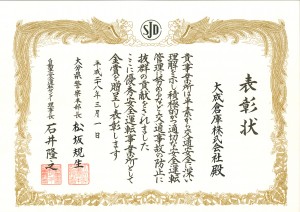 SJD
表彰状
大成倉庫株式会社殿
貴事業所は平素から交通安全に深い
理解を示し積極的かつ適切な安全運転
管理に努めるなど交通事故の防止に
抜群の貢献をされました
ここに優秀安全運転事業所として
金賞を贈呈し表彰します
平成二十八年三月一日
大分県警察本部長 松坂規生
自動車安全運転センター理事長 石井隆之